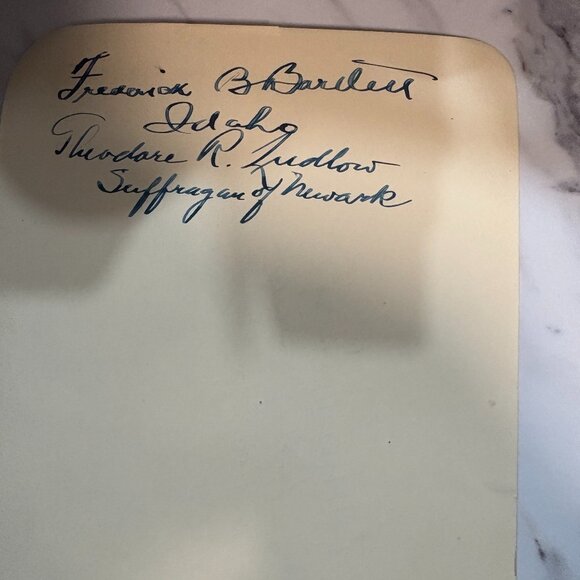 Frederick B Bartlett
Idaho
Theodore R. Ludlow
Suffragan of Newark